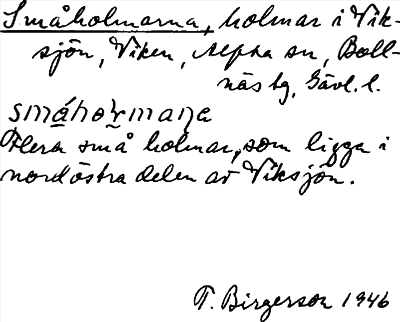 Småholmarna, holmar i Vik-
sjön, Viken, Alfta sn, Boll-
näs tg, Gävl. l.
småholmaṇa
Flera små holmar, som ligga i
nordöstra delen av Viksjön.
T. Birgerson 1946